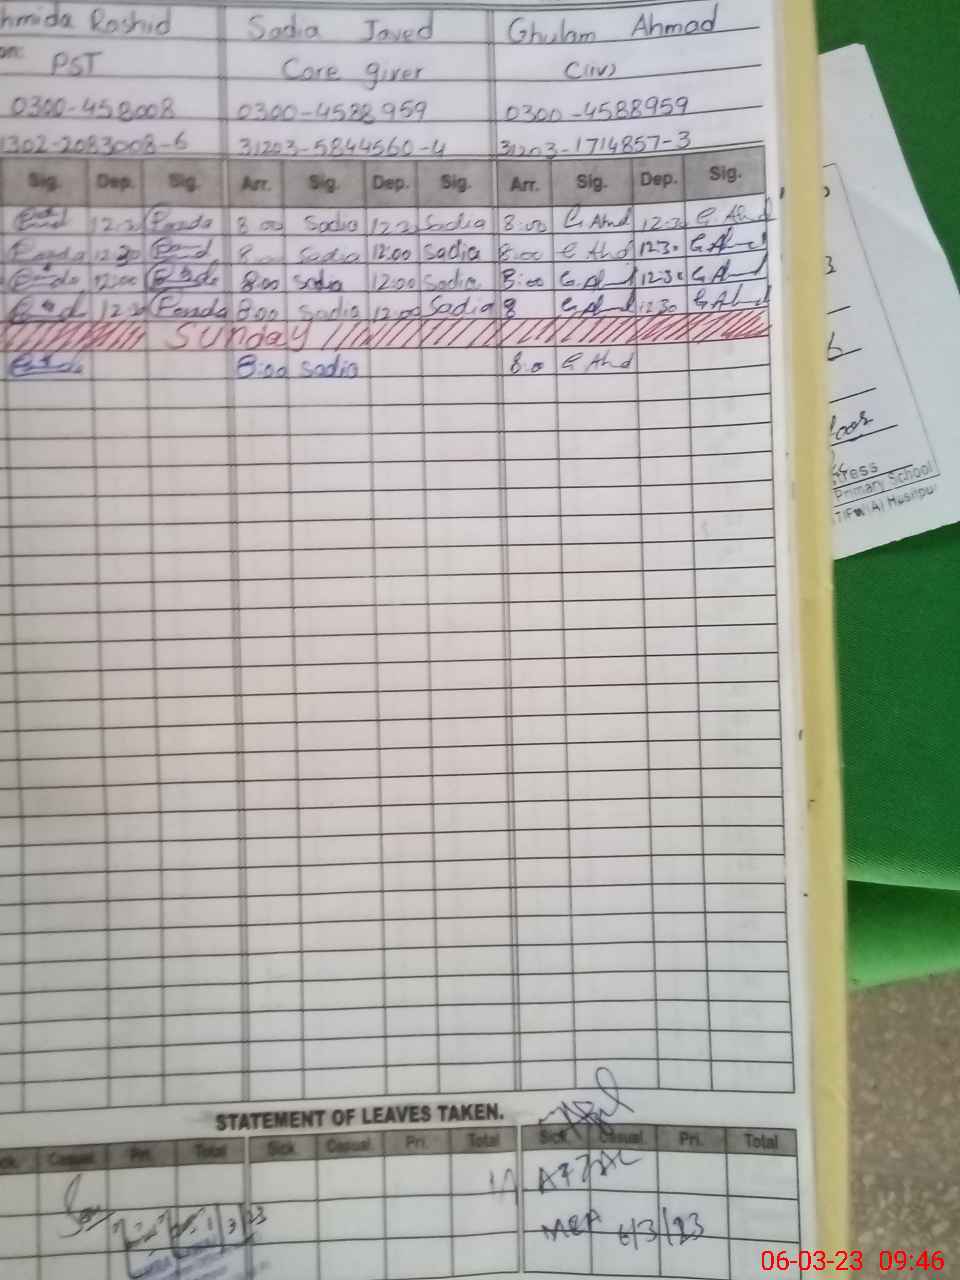 hmida Rashid Sadia Javed Ghulam Ahmad
on: PST Care giver C(IV)
0300-458008 0300-4588959 0300-4588959
1302-2083008-6 31203-5844560-4 31203-1714857-3
Sig. Dep. Sig. Arr. Sig. Dep. Sig. Arr. Sig. Dep. Sig.
12:30 8:00 Sadia Sadia 8:00 G. Ahmd 12:30 G. Ahmd
12:30 8:00 Sadia 12:00 Sadia 8:00 G Ahd 12:30 G Ahmd
12:00 8:00 Sadia 12:00 Sadia 8:00 G. Ahmd 12:30 G Ahmd
12:30 8:00 Sadia 12:00 Sadia 8 G. Ahmd 12:30 G Ahmd
Sunday
8:00 Sadia 8:00 G Ahd
STATEMENT OF LEAVES TAKEN.
ck. Casual Pri. Total Sick Casual Pri. Total Sick Casual Pri. Total
AFZAL
MEA 6/3/23
3
6
tress
Primary School
06-03-23 09:46